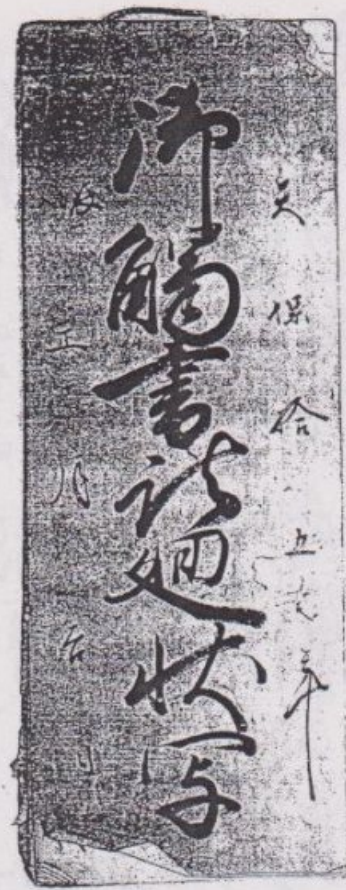 天保拾五年
御觸書諸廻状写
正月吉日